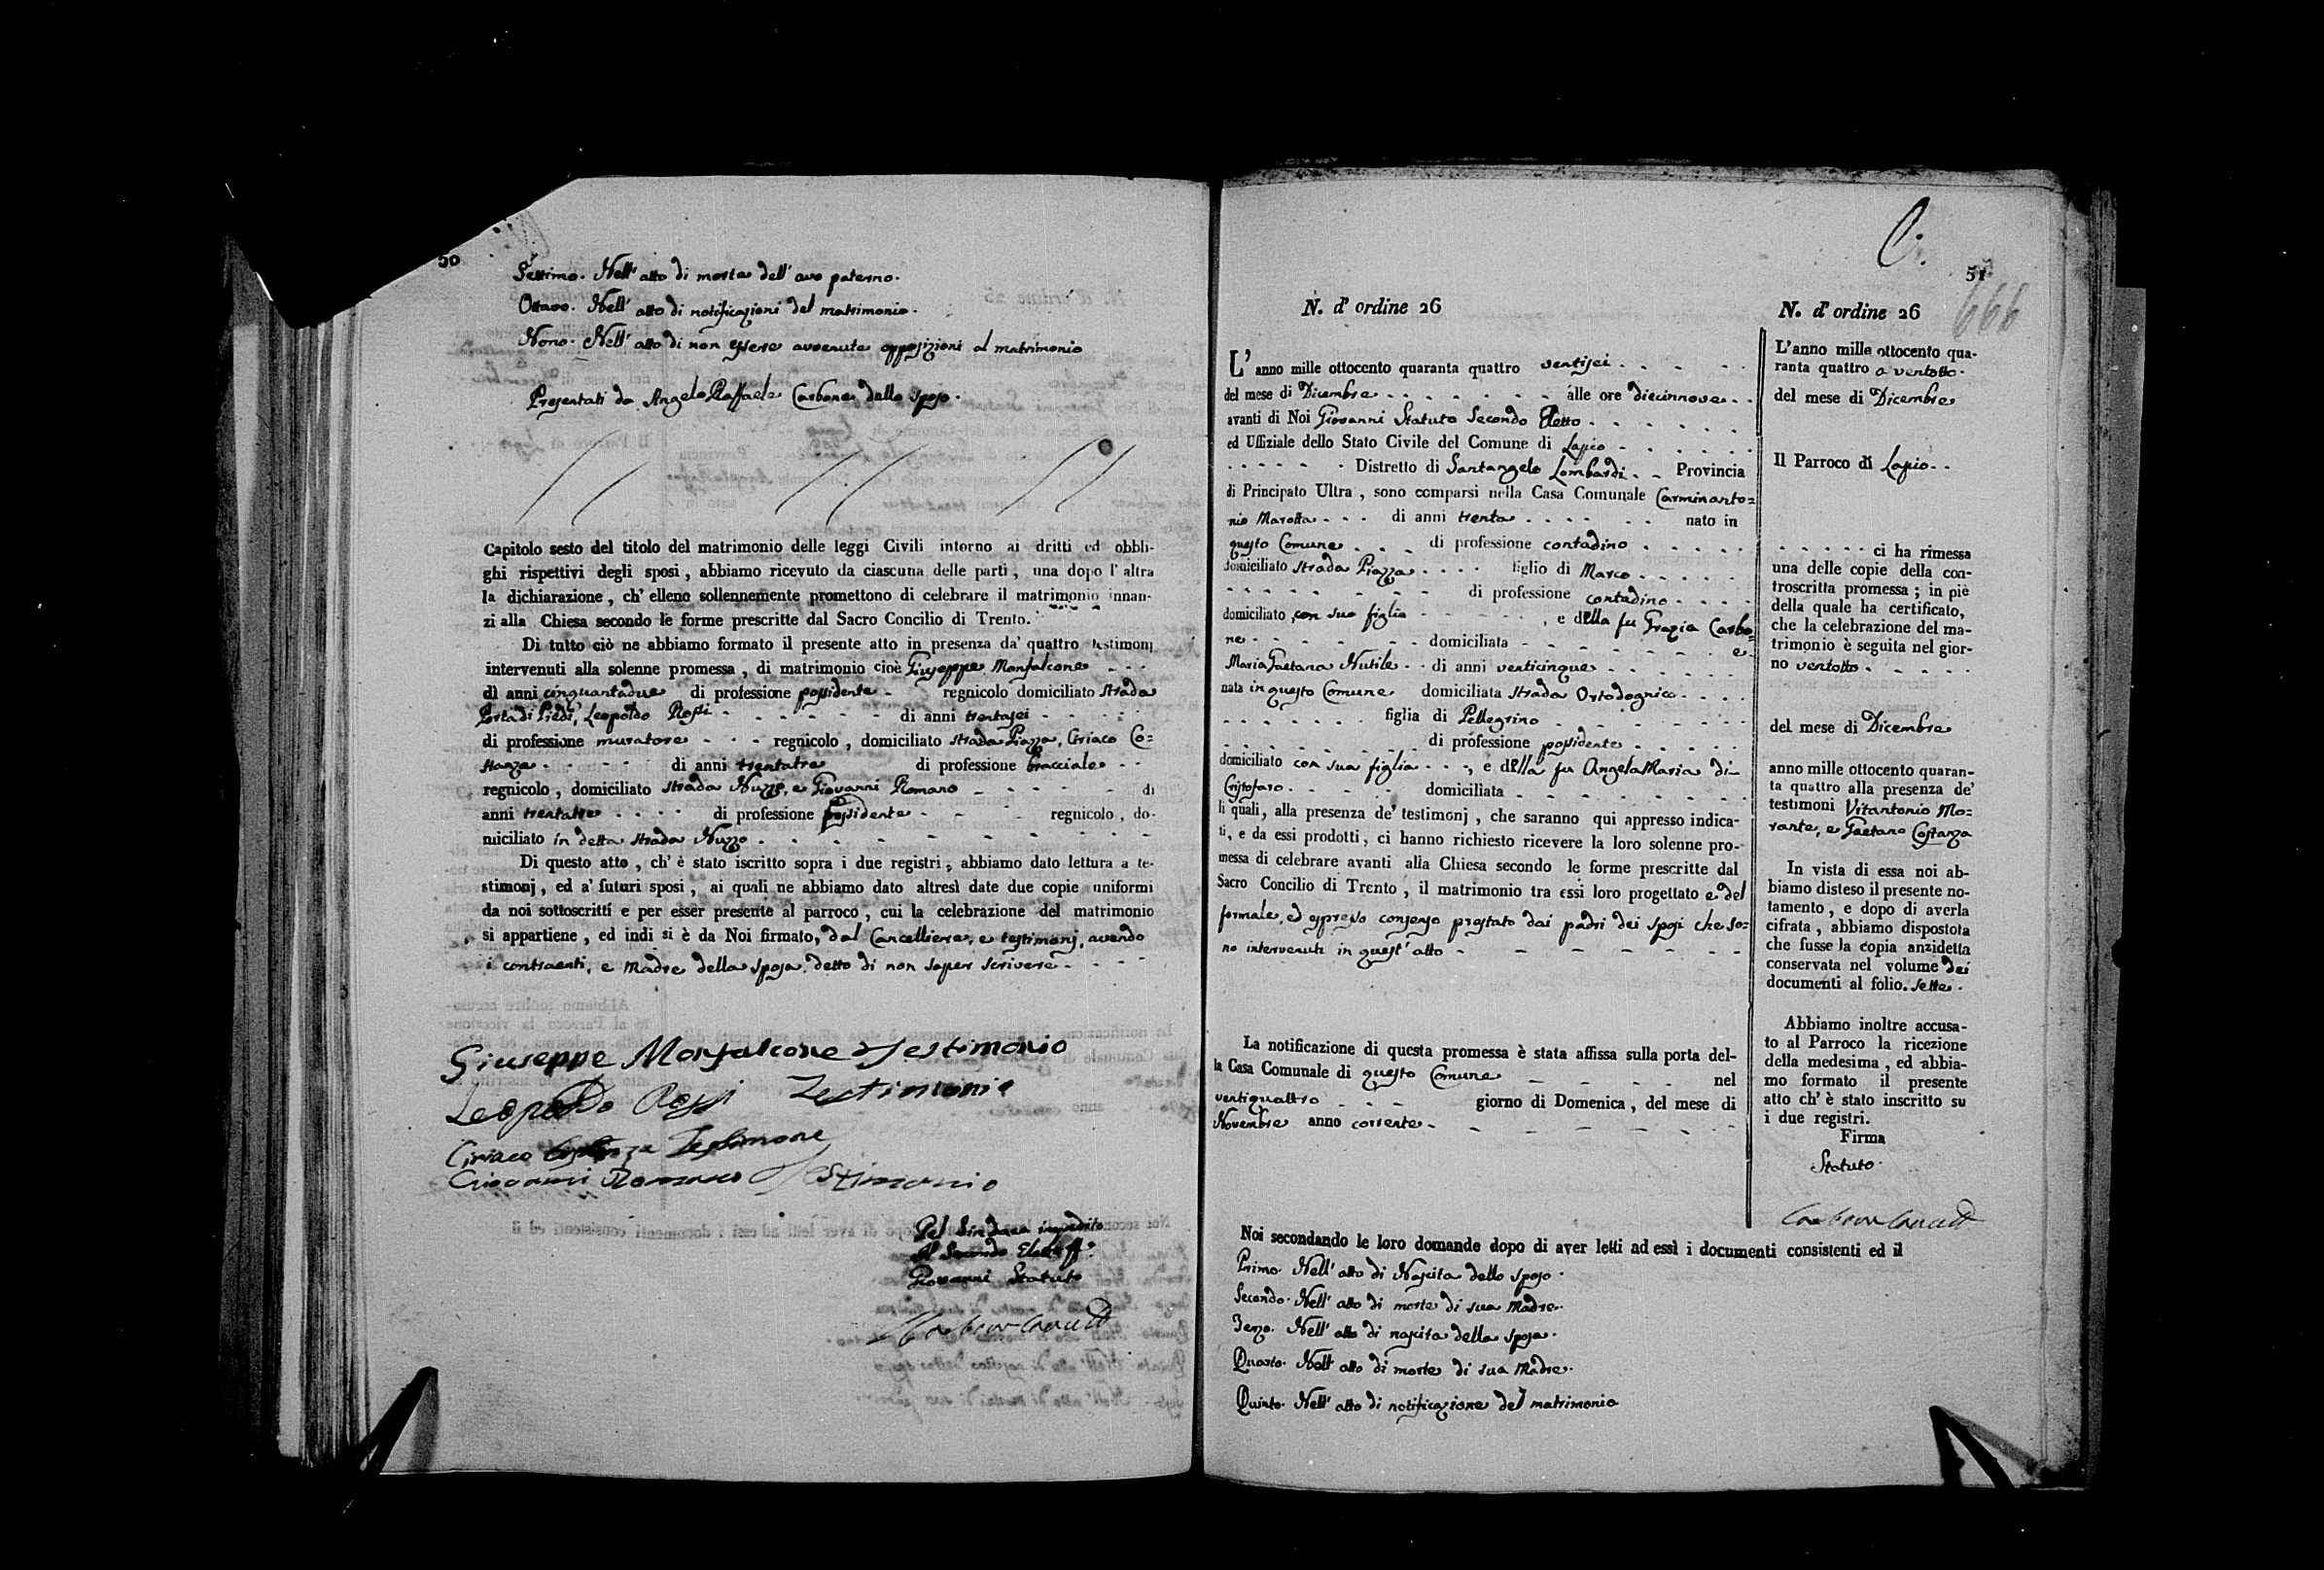 50
Settimo. Nell' atto di morte dell' avo paterno.
Ottavo. Nell' atto di notificazioni del matrimonio.
Nono. Nell' atto di non essere avvenute opposizioni al matrimonio
Presentati da Angelo Raffaele Carbone dello sposo.
Capitolo sesto del titolo del matrimonio delle leggi Civili intorno ai dritti ed obbli-
ghi rispettivi degli sposi, abbiamo ricevuto da ciascuna delle parti, una dopo l' altra
la dichiarazione, ch' elleno sollennemente promettono di celebrare il matrimonio innan-
zi alla Chiesa secondo le forme prescritte dal Sacro Concilio di Trento.
Di tutto ciò ne abbiamo formato il presente atto in presenza da' quattro testimonj
intervenuti alla solenne promessa, di matrimonio cioè Giuseppe Monfalcone
di anni cinquantadue di professione possidente regnicolo domiciliato Strada
Porta di Piedi, Leopoldo Rossi di anni trentasei
di professione muratore regnicolo, domiciliato strada Piazza, Ciriaco Co=
stanza di anni trentatre di professione bracciale
regnicolo, domiciliato strada Nuzzo, e Giovanni Romano di
anni trentatre di professione possidente regnicolo, do-
miciliato in detta strada Nuzzo
Di questo atto, ch' è stato iscritto sopra i due registri, abbiamo dato lettura a te-
stimonj, ed a' futuri sposi, ai quali ne abbiamo dato altresì date due copie uniformi
da noi sottoscritti e per esser presente al parroco, cui la celebrazione del matrimonio
si appartiene, ed indi si è da Noi firmato, dal Cancelliere, e testimonj, avendo
i contraenti, e Madre della sposa detto di non saper scrivere
Giuseppe Monfalcone Testimonio
Leopoldo Rossi Testimonio
Ciriaco Costanza Testimone
Giovanni Romano Testimonio
Pel Sindaco impedito
Il Secondo Eletto
Giovanni Statuto
51
666
N. d' ordine 26
L' anno mille ottocento quaranta quattro ventisei
del mese di Dicembre alle ore diecinnove
avanti di Noi Giovanni Statuto Secondo Eletto
ed Uffiziale dello Stato Civile del Comune di Lapio
Distretto di Santangelo Lombardi Provincia
di Principato Ultra, sono comparsi nella Casa Comunale Carminanto=
nio Marotta di anni trenta nato in
questo Comune di professione contadino
domiciliato Strada Piazza figlio di Marco
di professione contadino
domiciliato, con suo figlio, e della fu Grazia Carbo=
ne domiciliata e
Maria Gaetana Nutile di anni venticinque
nata in questo Comune domiciliata strada Ortodognico
figlia di Pellegrino
di professione possidente
domiciliato con sua figlia, e della fu Angela Maria di
Cristofaro domiciliata
li quali, alla presenza de' testimonj, che saranno qui appresso indica-
ti, e da essi prodotti, ci hanno richiesto ricevere la loro solenne pro-
messa di celebrare avanti alla Chiesa secondo le forme prescritte dal
Sacro Concilio di Trento, il matrimonio tra essi loro progettato e del
formale, ed espresso consenso prestato dai padri dei sposi che so=
no intervenuti in quest' atto
La notificazione di questa promessa è stata affissa sulla porta del-
la Casa Comunale di questo Comune nel
ventiquattro giorno di Domenica, del mese di
Novembre anno corrente
Noi secondando le loro domande dopo di aver letti ad essi i documenti consistenti ed il
Primo. Nell' atto di Nascita dello sposo.
Secondo. Nell' atto di morte di sua Madre.
Terzo. Nell' atto di nascita della sposa.
Quarto. Nell' atto di morte di sua Madre.
Quinto. Nell' atto di notificazione del matrimonio
N. d' ordine 26
L'anno mille ottocento qua-
ranta quattro a ventotto.
del mese di Dicembre
Il Parroco di Lapio
ci ha rimessa
una delle copie della con-
troscritta promessa; in piè
della quale ha certificato,
che la celebrazione del ma-
trimonio è seguita nel gior-
no ventotto
del mese di Dicembre
anno mille ottocento quaran-
ta quattro alla presenza de'
testimoni Vitantonio Mo=
rante, e Gaetano Costanza
In vista di essa noi ab-
biamo disteso il presente no-
tamento, e dopo di averla
cifrata, abbiamo dispostota
che fusse la copia anzidetta
conservata nel volume dei
documenti al folio. sette.
Abbiamo inoltre accusa-
to al Parroco la ricezione
della medesima, ed abbia-
mo formato il presente
atto ch' è stato inscritto su
i due registri.
Firma
Statuto.